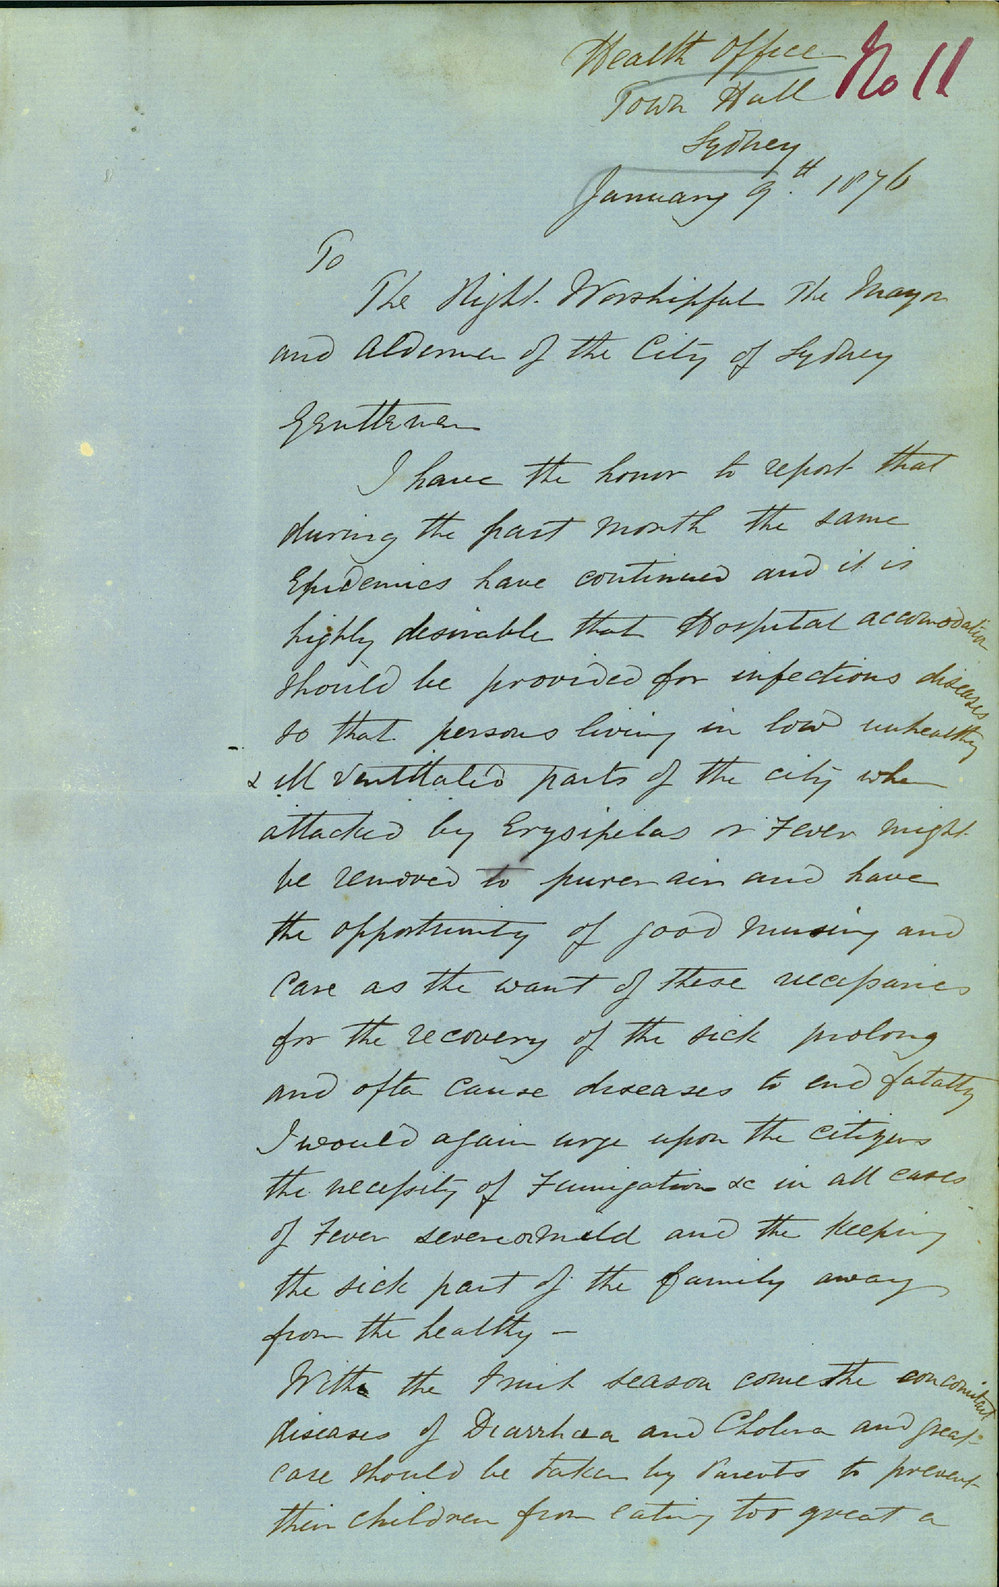 Health Office
No 11
Town Hall
Sydney
January 9th. 1876
To
The Right Worshipful The Mayor
and Aldermen of the City of Sydney
Gentlemen
I have the honor to report that
during the past month the same
Epidemics have continued and it is
highly desirable that Hospital accomodation
should be provided for infectious diseases
so that persons living in low unhealthy
& ill ventilated parts of the city when
attacked by Erysipelas or Fever might
be removed to purer air and have
the opportunity of good nursing and
care as the want of these necessaries
for the recovery of the sick prolong
and often cause diseases to end fatally
I would again urge upon the citizens
the necessity of Fumigation &c in all cases
of Fever severe or mild and the keeping
the sick part of the family away
from the healthy —
With the Fruit season come the concomitant
diseases of Diarrhœa and Cholera and great
care should be taken by Parents to prevent
their children from eating too great a